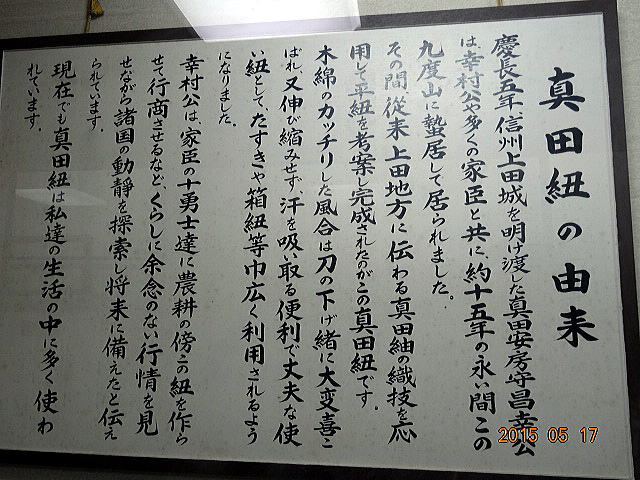 真田紐の由来
慶長五年、信州上田城を明け渡した真田安房守昌幸公
は、幸村公や多くの家臣と共に、約十五年の永い間この
九度山に蟄居して居られました。
その間、従来上田地方に伝わる真田紬の織技を応
用して平紐を考案し完成されたのがこの真田紐です。
木綿のカッチリした風合は刀の下げ緒に大変喜こ
ばれ、又伸び縮みせず、汗を吸い取る便利で丈夫な使
い紐として、たすきや箱紐等巾広く利用されるよう
になりました。
幸村公は、家臣の十勇士達に農耕の傍この紐を作ら
せて行商させるなど、くらしに余念のない行情を見
せながら諸国の動静を探索し将来に備えたと伝え
られています。
現在でも真田紐は私達の生活の中に多く使わ
れています。
2015 05 17